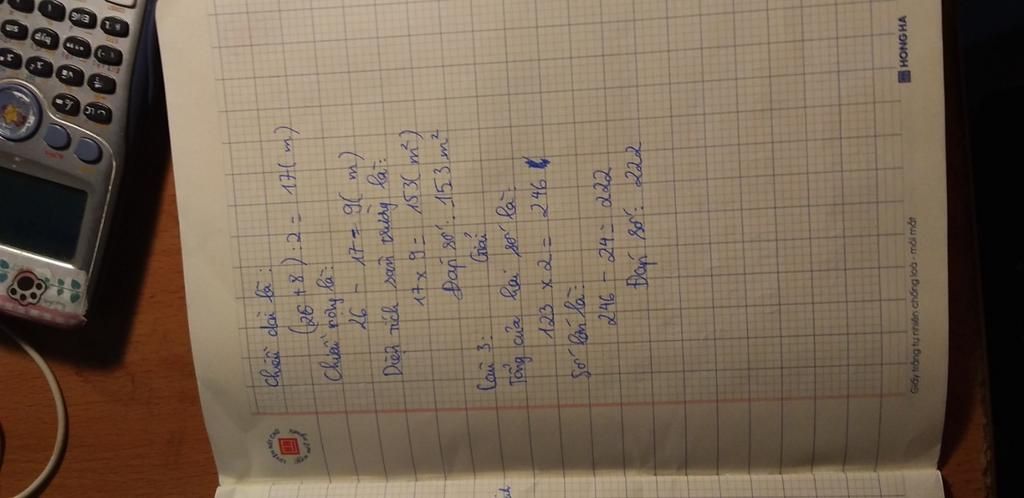 Chiều dài là:
(26 + 8) : 2 = 17( m)
Chiều rộng là:
26 - 17 = 9( m)
Diện tích sân trường là:
17 x 9 = 153( m²)
Đáp số: 153 m²
Câu 3: Giải
Tổng của hai số là:
123 x 2 = 246
Số lớn là:
246 - 24 = 222
Đáp số: 222
HONG HA
Giấy trắng tự nhiên chống loá - mỏi mắt